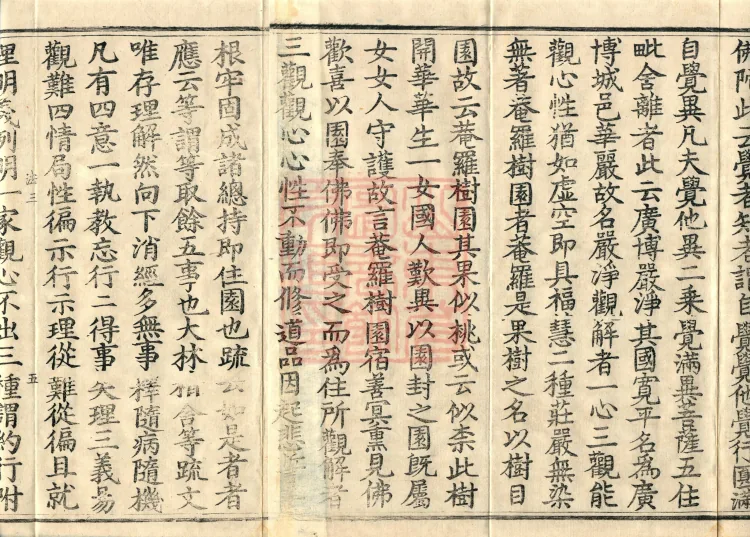 佛陀此云覺者知者謂自覺覺他覺行圓滿
自覺異凡夫覺他異二乘覺滿異菩薩五住
毗舍離者此云廣博嚴淨其國寬平名為廣
博城邑華嚴故名嚴淨觀解者一心三觀能
觀心性猶如虛空即具福慧二種莊嚴無染
無著菴羅樹園者菴羅是果樹之名以樹目
園故云菴羅樹園其果似桃或云似柰此樹
開華華生一女國人歎異以園封之園既屬
女女人守護故言菴羅樹園宿善冥熏見佛
歡喜以園奉佛佛即受之而為住所觀解者
三觀觀心心性不動而修道品因起悲
根牢固成諸總持即住園也疏云如是者者
應云等謂等取餘五事也大林 舍等疏文
唯存理解然向下消經多無事釋隨病隨機
凡有四意一執教忘行二得事失理三義易
觀難四情局性徧示行示理從難從徧且就
理明義列明一家觀心不出三種謂約行附
法三
五